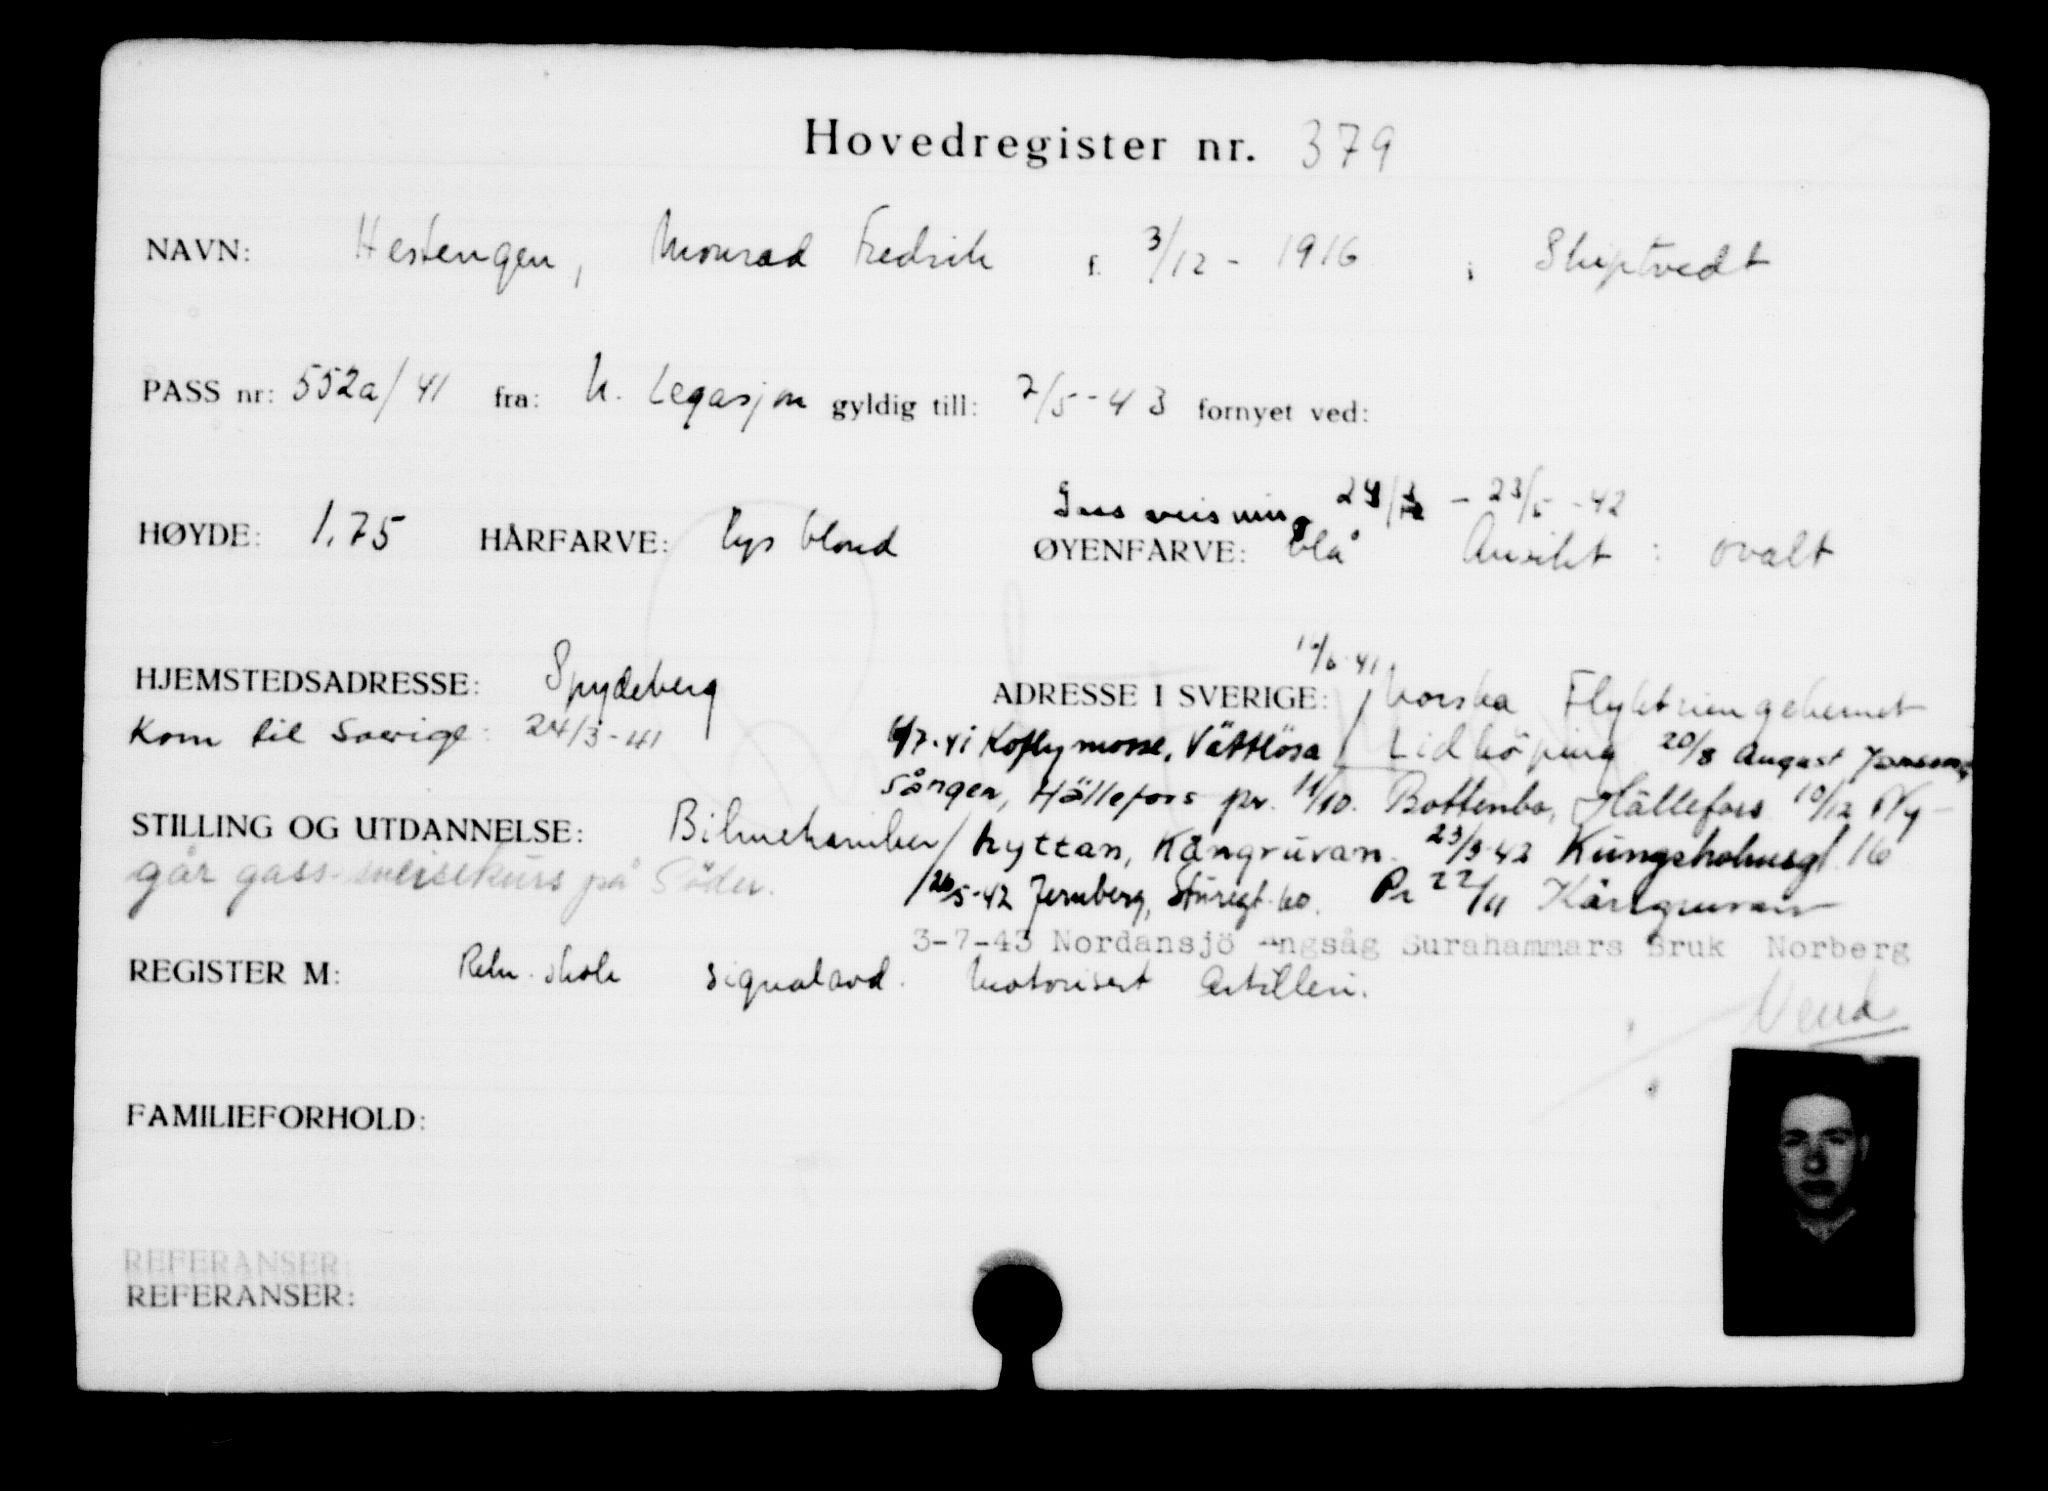 Hovedregister nr. 379
NAVN: Hestengen, Monrad Fredrik f. 3/12 - 1916 i Skiptvedt
PASS nr: 552a/41 fra: N. Legasjon gyldig till: 7/5-43 fornyet ved:
Gassveising 24/3 - 23/5 -42
HØYDE: 1.75 HÅRFARVE: lys blond ØYENFARVE: blå Ansikt : ovalt
HJEMSTEDSADRESSE: Spydeberg ADRESSE I SVERIGE: /6-41 Norska Flyktningehemet
Kom til Sverige: 24/3-41 /7-41 Koflymosse, Vättlösa / Lidköping 20/8 August Jansson,
Sången, Hällefors pr. 11/10. Bottenbo, Hällefors 10/12 Ny-
STILLING OG UTDANNELSE: Bilmekaniker / hyttan, Kångruvan. 23/3-42 Kungsholmsgt. 16
går gass-sveisekurs på Söder. /26/5-42 Jernberg, Sturegt. 60. Pr 22/11 Kångruvan
3-7-43 Nordansjö Ångsåg Surahammars Bruk Norberg
REGISTER M: Rekr. skole signalavd. Motorisert Artilleri.
Vend
FAMILIEFORHOLD:
REFERANSER:
REFERANSER: